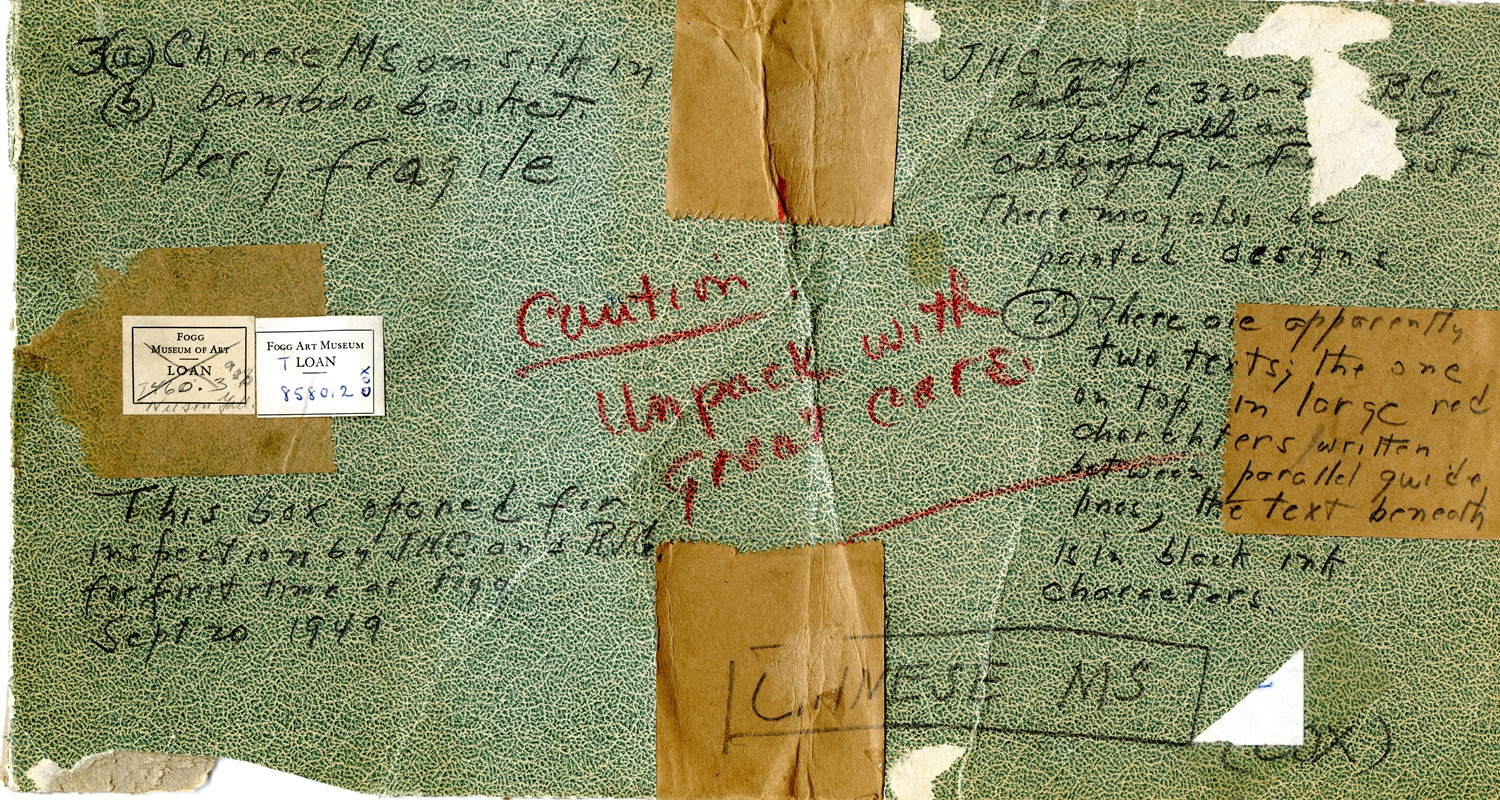 3(a) Chinese MS on silk in
(b) bamboo basket.
Very fragile
FOGG
MUSEUM OF ART
LOAN
7460.3
FOGG ART MUSEUM
T LOAN
8580.2
COX
This box opened for
inspection by JHC and
for first time at Fogg
Sept 20 1949
Caution
Unpack with
great care.
JHC says
date c. 320-2 B.C.
calligraphy in
There may also be
painted designs
(2) There are apparently
two texts; the one
on top in large red
charckters written
between parallel guide
lines; the text beneath
is in black ink
characters.
CHINESE MS
(COX)